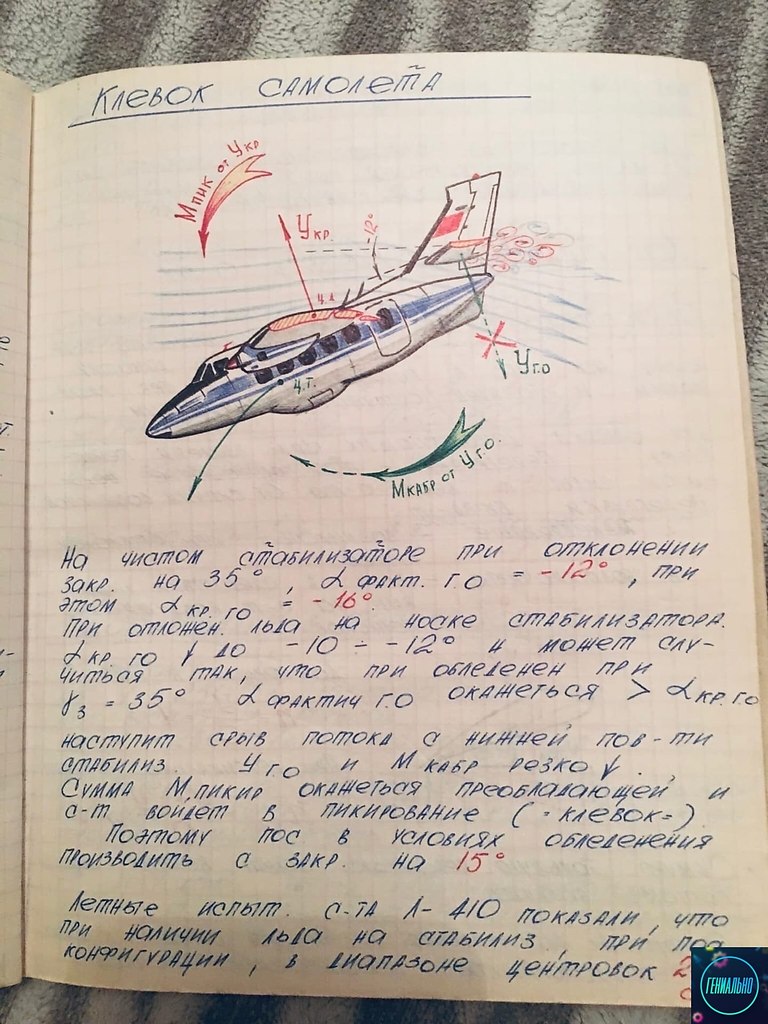 Клевок самолета
Мпик от Укр
Укр.
-12°
ц.д.
ц.т.
Уг.о
Мкабр от Уг.о.
На чистом стабилизаторе при отклонении
закр. на 35°, α факт. г.о = -12°, при
этом α кр. го = -16°
При отложен. льда на носке стабилизатора.
α кр. го ↓ до -10 ÷ -12° и может слу-
читься так, что при обледенен при
γз = 35° α фактич г.о окажеться > α кр. г.о
наступит срыв потока с нижней пов-ти
стабилиз. Уг.о и Мкабр резко ↓.
Сумма М.пикир окажеться преобладающей и
с-т войдет в пикирование (=клевок=).
Поэтому пос в условиях обледенения
производить с закр. на 15°
Летные испыт. с-та Л-410 показали, что
при наличии льда на стабилиз, при пос
конфигурации, в диапазоне центровок 2
ГЕНИАЛЬНО